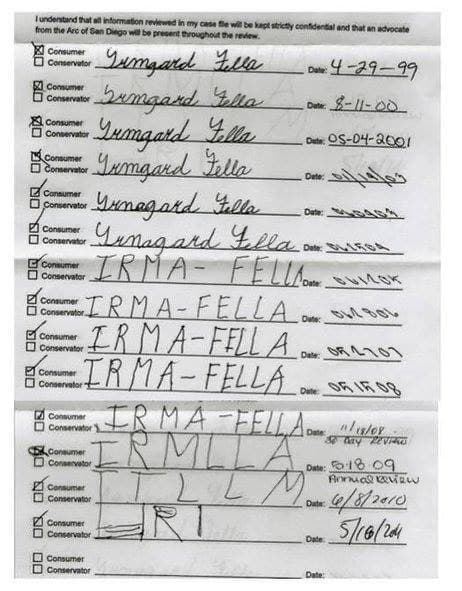 I understand that all information reviewed in my case file will be kept strictly confidential and that an advocate
from the Arc of San Diego will be present throughout the review.
Consumer
Conservator Yrmgard Fella Date: 4-29-99
Consumer
Conservator Yrmgard Fella Date: 8-11-00
Consumer
Conservator Yrmgard Fella Date: 05-04-2001
Consumer
Conservator Yrmgard Fella Date:
Consumer
Conservator Yrnagard Fella Date:
Consumer
Conservator Yrnagard Fella Date:
Consumer
Conservator IRMA- FELLA Date:
Consumer
Conservator IRMA-FELLA Date:
Consumer
Conservator IRMA-FELLA Date:
Consumer
Conservator IRMA-FELLA Date:
Consumer
Conservator IRMA-FELLA Date: 11/18/08
30 Day REVIEW
Consumer
Conservator IRMLLA Date: 5-18 09
Annual Review
Consumer
Conservator ITLLM Date: 6/8/2010
Consumer
Conservator Date: 5/16/2011
Consumer
Conservator Date: